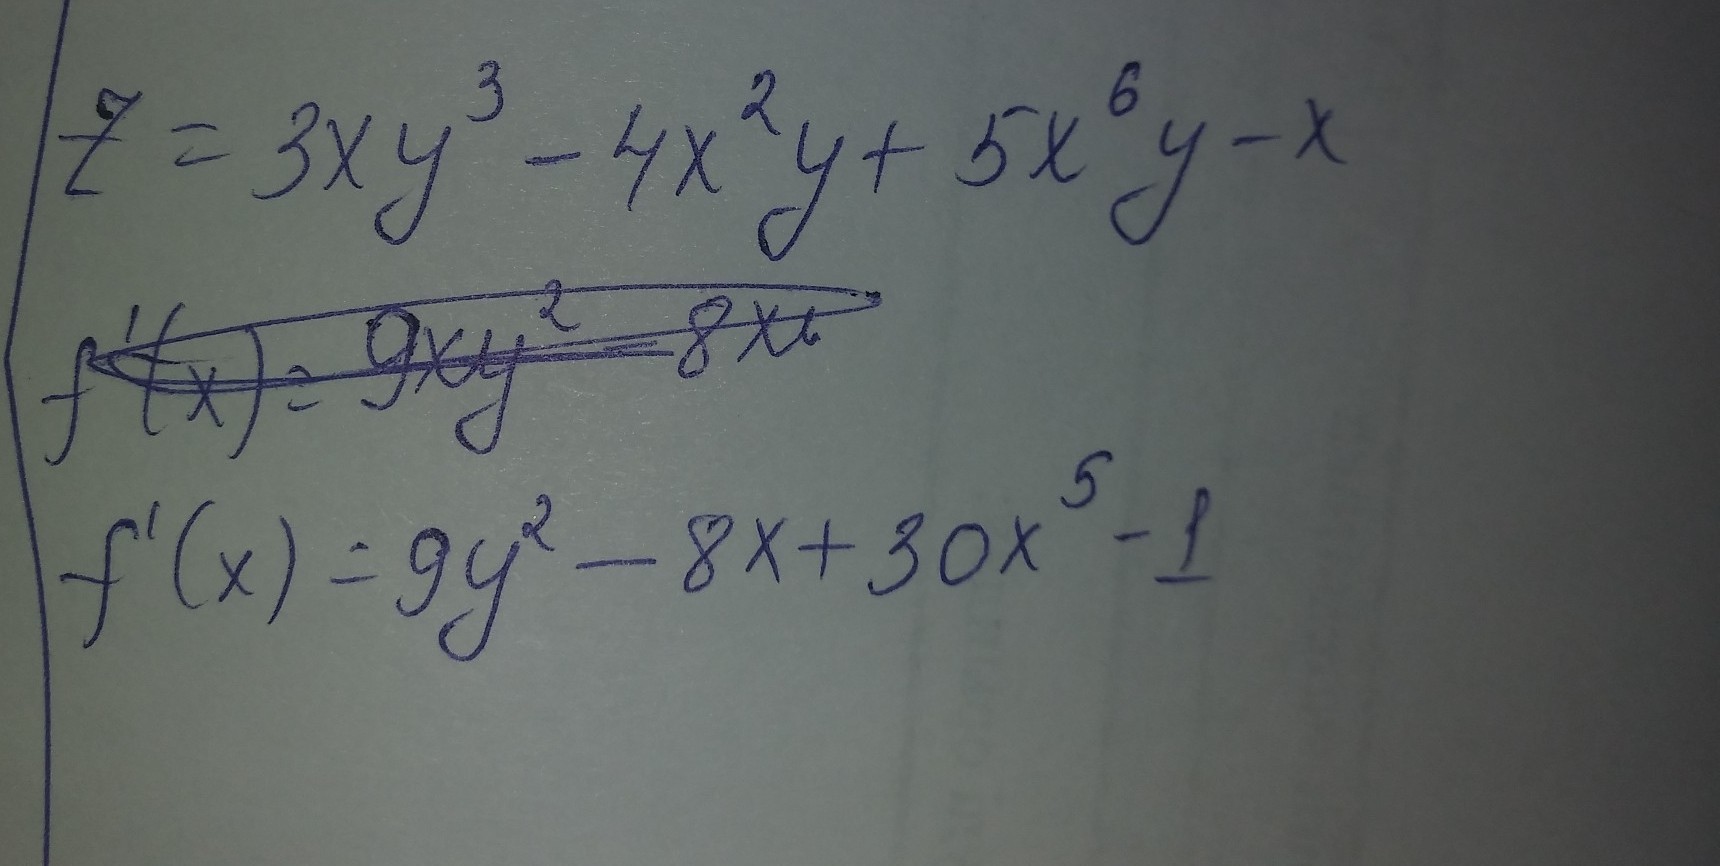 z = 3xy³ - 4x²y + 5x⁶y - x
f'(x) = 9xy² - 8x
f'(x) = 9y² - 8x + 30x⁵ - 1